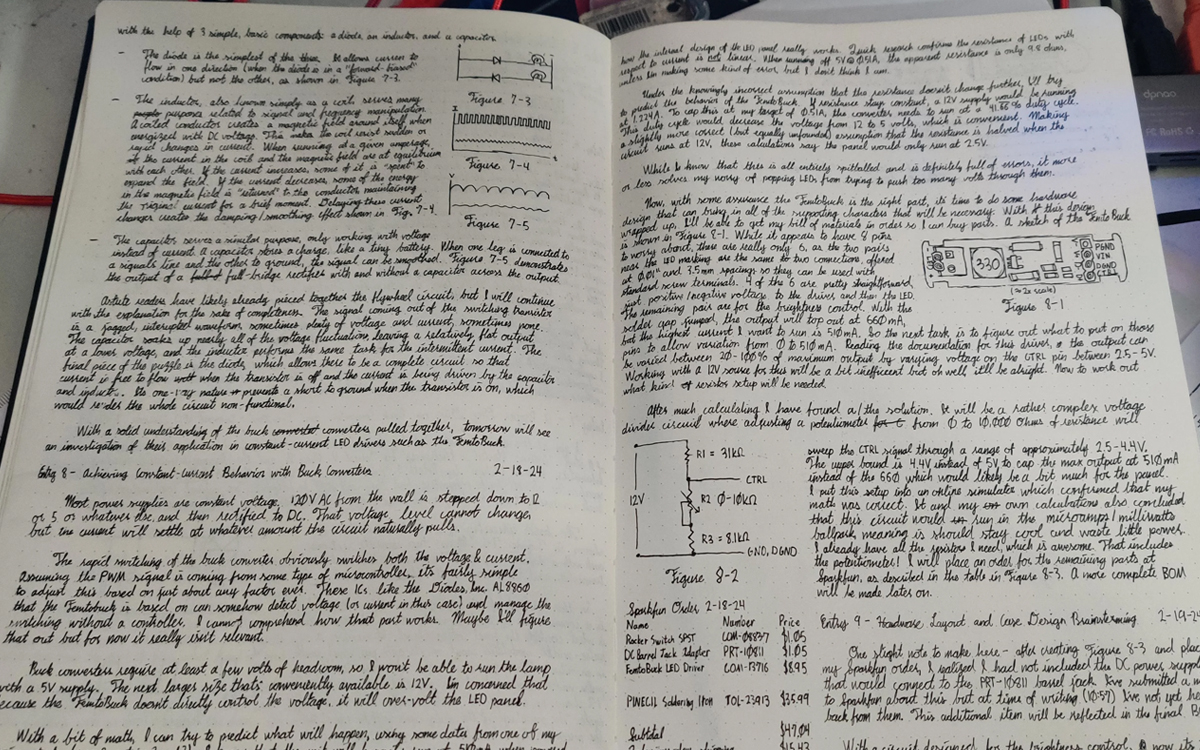 with the help of 3 simple, basic components: a diode, an inductor, and a capacitor.
- The diode is the simplest of the three. It allows current to
flow in one direction (when the diode is in a "forward-biased"
condition) but not the other, as shown in Figure 7-3.
Figure 7-3
- The inductor, also known simply as a coil serves many
purposes related to signal and frequency manipulation.
A coiled conductor creates a magnetic field around itself when
energized with DC voltage. This makes the coil resist sudden or
rapid changes in current. When running at a given amperage,
the current in the coil and the magnetic field are at equilibrium
with each other. If the current increases, some of it is "spent" to
expand the field. If the current decreases, some of the energy
in the magnetic field is "returned" to the conductor maintaining
the original current for a brief moment. Delaying these current
changes creates the damping/smoothing effect shown in Fig. 7-4.
I
Figure 7-4
V
Figure 7-5
- The capacitor serves a similar purpose, only working with voltage
instead of current. A capacitor stores a charge, like a tiny battery. When one leg is connected to
a signal's line and the other to ground, the signal can be smoothed. Figure 7-5 demonstrates
the output of a full-bridge rectifier with and without a capacitor across the output.
Astute readers have likely already pieced together the flywheel circuit, but I will continue
with the explanation for the sake of completeness. The signal coming out of the switching transistor
is a jagged, interrupted waveform, sometimes plenty of voltage and current, sometimes none.
The capacitor soaks up nearly all of the voltage fluctuation, leaving a relatively flat output
at a lower voltage, and the inductor performs the same task for the intermittent current. The
final piece of the puzzle is the diode, which allows there to be a complete circuit so that
current is free to flow when the transistor is off and the current is being driven by the capacitor
and inductor. Its one-way nature prevents a short to ground when the transistor is on, which
would render the whole circuit non-functional.
With a solid understanding of the buck converters pulled together, tomorrow will see
an investigation of their application in constant-current LED drivers such as the FemtoBuck.
Entry 8 - Achieving Constant-Current Behavior with Buck Converters 2-18-24
Most power supplies are constant voltage. 120V AC from the wall is stepped down to 12
or 5 or whatever else, and then rectified to DC. That voltage level cannot change,
but the current will settle at whatever amount the circuit naturally pulls.
The rapid switching of the buck converter obviously switches both the voltage & current.
Assuming the PWM signal is coming from some type of microcontroller, it's fairly simple
to adjust this based on just about any factor ever. These ICs like the Diodes, Inc. AL8860
that the Femtobuck is based on can somehow detect voltage (or current in this case) and manage the
switching without a controller. I cannot comprehend how that part works. Maybe I'll figure
that out but for now it really isn't relevant.
Buck converters require at least a few volts of headroom, so I won't be able to run the lamp
with a 5V supply. The next larger size that's conveniently available is 12V. I'm concerned that
because the FemtoBuck doesn't directly control the voltage, it will over-volt the LED panel.
With a bit of math, I can try to predict what will happen, using some data from one of my
how the internal design of the LED panel really works. Quick research confirms the resistance of LEDs with
respect to current is not linear. When running off 5V @ 0.51A, the apparent resistance is only 9.8 ohms,
unless I'm making some kind of error, but I don't think I am.
Under the knowingly incorrect assumption that the resistance doesn't change further, I'll try
to predict the behavior of the FemtoBuck. If resistance stays constant, a 12V supply would be running
at 1.224A. To cap this at my target of 0.51A, the converter needs to run at a 41.66% duty cycle.
This duty would decrease the voltage from 12 to 5 volts, which is convenient. Making
a slightly more correct (but equally unfounded) assumption that the resistance is halved when the
circuit runs at 12V, these calculations say the panel would only run at 2.5V.
While I know that this is all entirely spitballed and is definitely full of errors, it more
or less solves my worry of popping LEDs from trying to push too many volts through them.
Now, with some assurance the FemtoBuck is the right part, it's time to do some hardware
design that can bring in all of the supporting characters that will be necessary. With this design
wrapped up, I'll be able to get my bill of materials in order so I can buy parts. A sketch of the FemtoBuck
is shown in Figure 8-1. While it appears to have 8 pins
to worry about, there are really only 6, as the two pairs
near the LED marking are the same to two connections, offered
at 0.01" and 3.5mm spacings so they can be used with
standard screw terminals. 4 of the 6 are pretty straightforward,
just positive/negative voltage to the driver and then the LED.
The remaining pair are for the brightness control. With the
solder gap jumped, the output will top out at 660mA,
but the highest current I want to run is 510mA. So the next task is to figure out what to put on those
pins to allow variation from 0 to 510mA. Reading the documentation for this driver, the output can
be varied between 20-100% of maximum output by varying voltage on the CTRL pin between 2.5-5V.
Working with a 12V source for this will be a bit inefficient but oh well, it'll be alright. Now to work out
what kind of resistor setup will be needed.
330
PGND
VIN
DGND
CTRL
(≈2x scale)
Figure 8-1
After much calculating I have found a/the solution. It will be a rather complex voltage
divider circuit where adjusting a potentiometer from 0 to 10,000 Ohms of resistance will
sweep the CTRL signal through a range of approximately 2.5-4.4V.
The upper bound is 4.4V instead of 5V to cap the max output at 510mA
instead of the 660 which would likely be a bit much for the panel.
I put this setup into an online simulator which confirmed that my
math was correct. It and my own calculations also concluded
that this circuit would run in the microamps/milliwatts
ballpark, meaning is should stay cool and waste little power.
I already have all the resistors I need, which is awesome. That includes
the potentiometer! I will place an order for the remaining parts at
Sparkfun, as described in the table in Figure 8-3. A more complete BOM
will be made later on.
12V
R1 = 31kΩ
CTRL
R2 0-10kΩ
R3 = 8.1kΩ
GND, DGND
Figure 8-2
Sparkfun Order 2-18-24
Name Number Price
Rocker Switch SPST COM-08837 $1.05
DC Barrel Jack Adapter PRT-10811 $1.05
FemtoBuck LED Driver COM-13716 $8.95
PINECIL Soldering Iron TOL-23913 $35.99
Subtotal $47.04
$15.43
Entry 9 - Hardware Layout and Case Design Brainstorming 2-19-24
One slight note to make here - after creating Figure 8-3 and plac
my Sparkfun order, I realized I had not included the DC power suppl
that would connect to the PRT-10811 barrel jack. I've submitted a
to Sparkfun about this but at time of writing (10:57) I've not yet he
back from them. This additional item will be reflected in the final B
With a circuit designed for the brightness control,